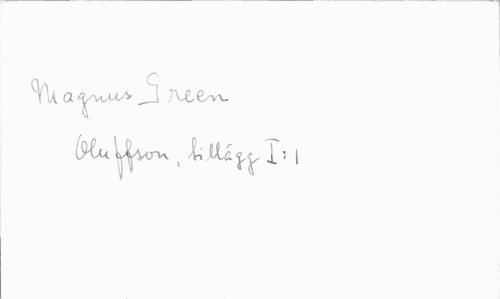 Magnus Green
Oluffson, tillägg I:1